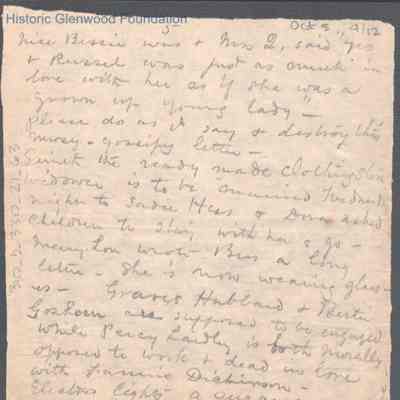 Historic Glenwood Foundation
Oct 8, 1912
nice Bessie was & Mrs Q. said yes
& Russel was just as much in
love with her as if she was a
grown up young lady —
Please do as I say & destroy this
newsy - gossipy letter —
the ready made clothing
widower is to be married Wednesday
night to Hess & Dora asked
children to stay with her & go —
wrote Bess a long
letter. She is now wearing glass-
es — Graves Hubbard & Berta
Goshorn are supposed to be engaged
while Percy Laidley is both morally
opposed to work & dead in love
with Fannie Dickinson —
lights a
302.2.350.21.53